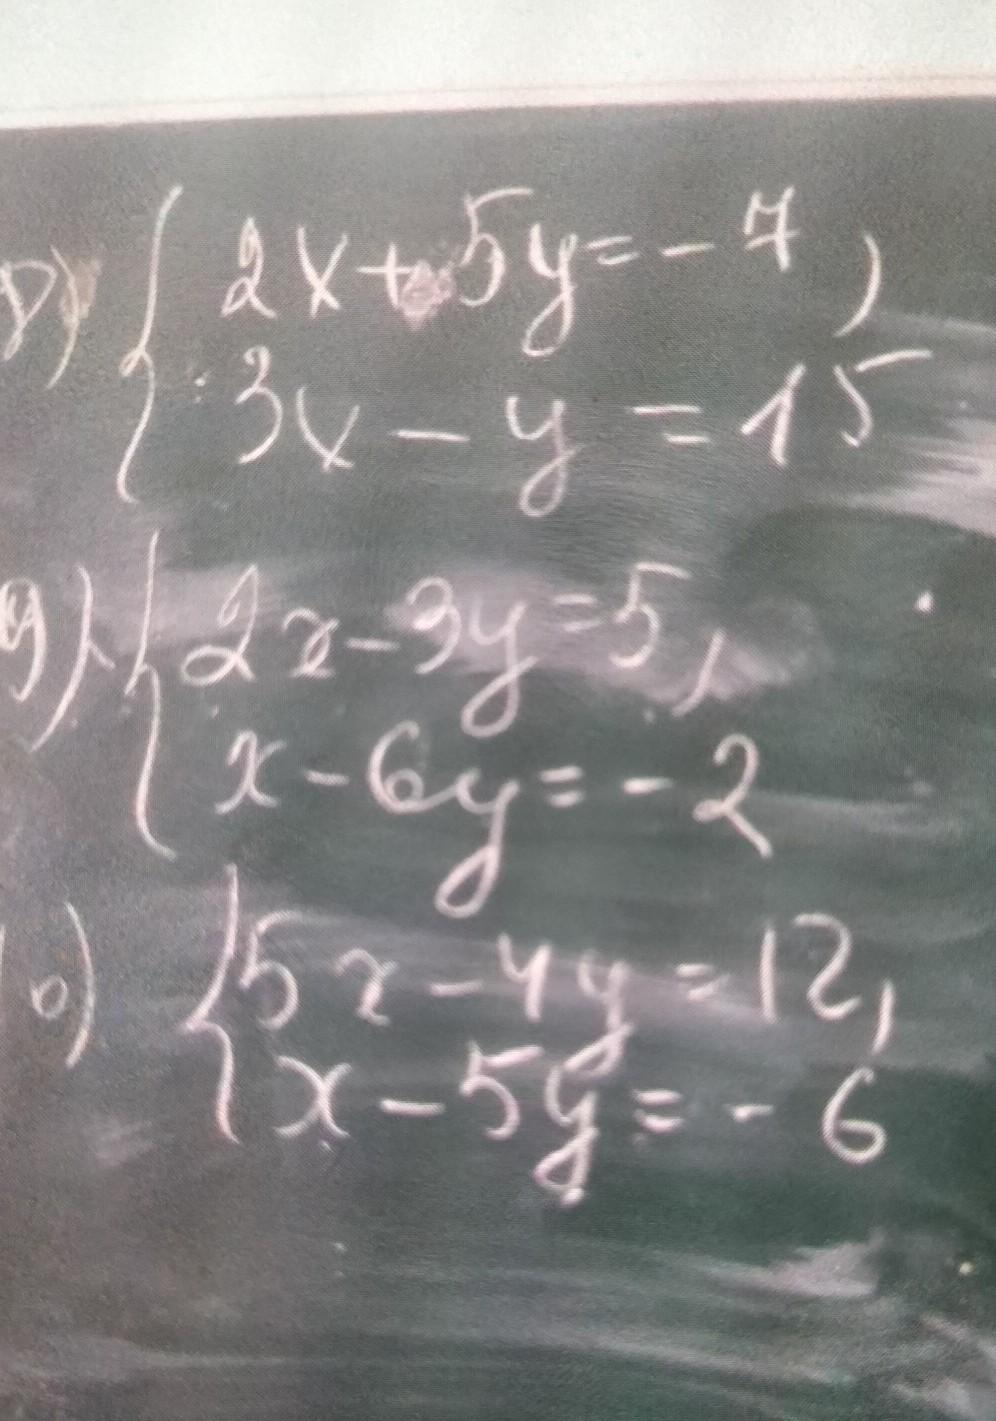 8) { 2x + 5y = - 7,
3x - y = 15
9) { 2x - 3y = 5,
x - 6y = - 2
10) { 5x - 4y = 12,
x - 5y = - 6